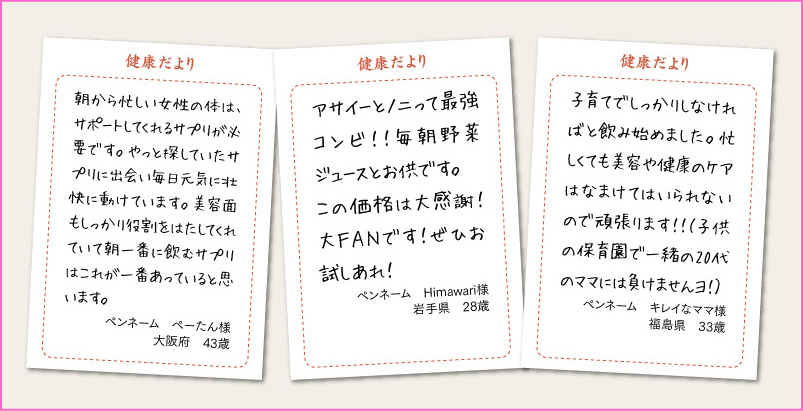 健康だより
朝から忙しい女性の体は、
サポートしてくれるサプリが必
要です。やっと探していたサ
プリに出会い毎日元気に壮
快に動けています。美容面
もしっかり役割をはたしてくれ
ていて朝一番に飲むサプリ
はこれが一番あっていると思
います。
ペンネーム ぺーたん様
大阪府 43歳
健康だより
アサイーとノニって最強
コンビ!!毎朝野菜
ジュースとお供です。
この価格は大感謝!
大FANです!ぜひお
試しあれ!
ペンネーム Himawari様
岩手県 28歳
健康だより
子育てでしっかりしなけれ
ばと飲み始めました。忙
しくても美容や健康のケア
はなまけてはいられない
ので頑張ります!!(子供
の保育園で一緒の20代
のママには負けませんヨ!)
ペンネーム キレイなママ様
福島県 33歳